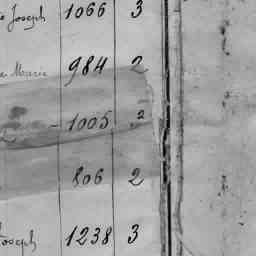 Joseph 1066 3
Marie 984 2
1005 2
806 2
Joseph 1238 3